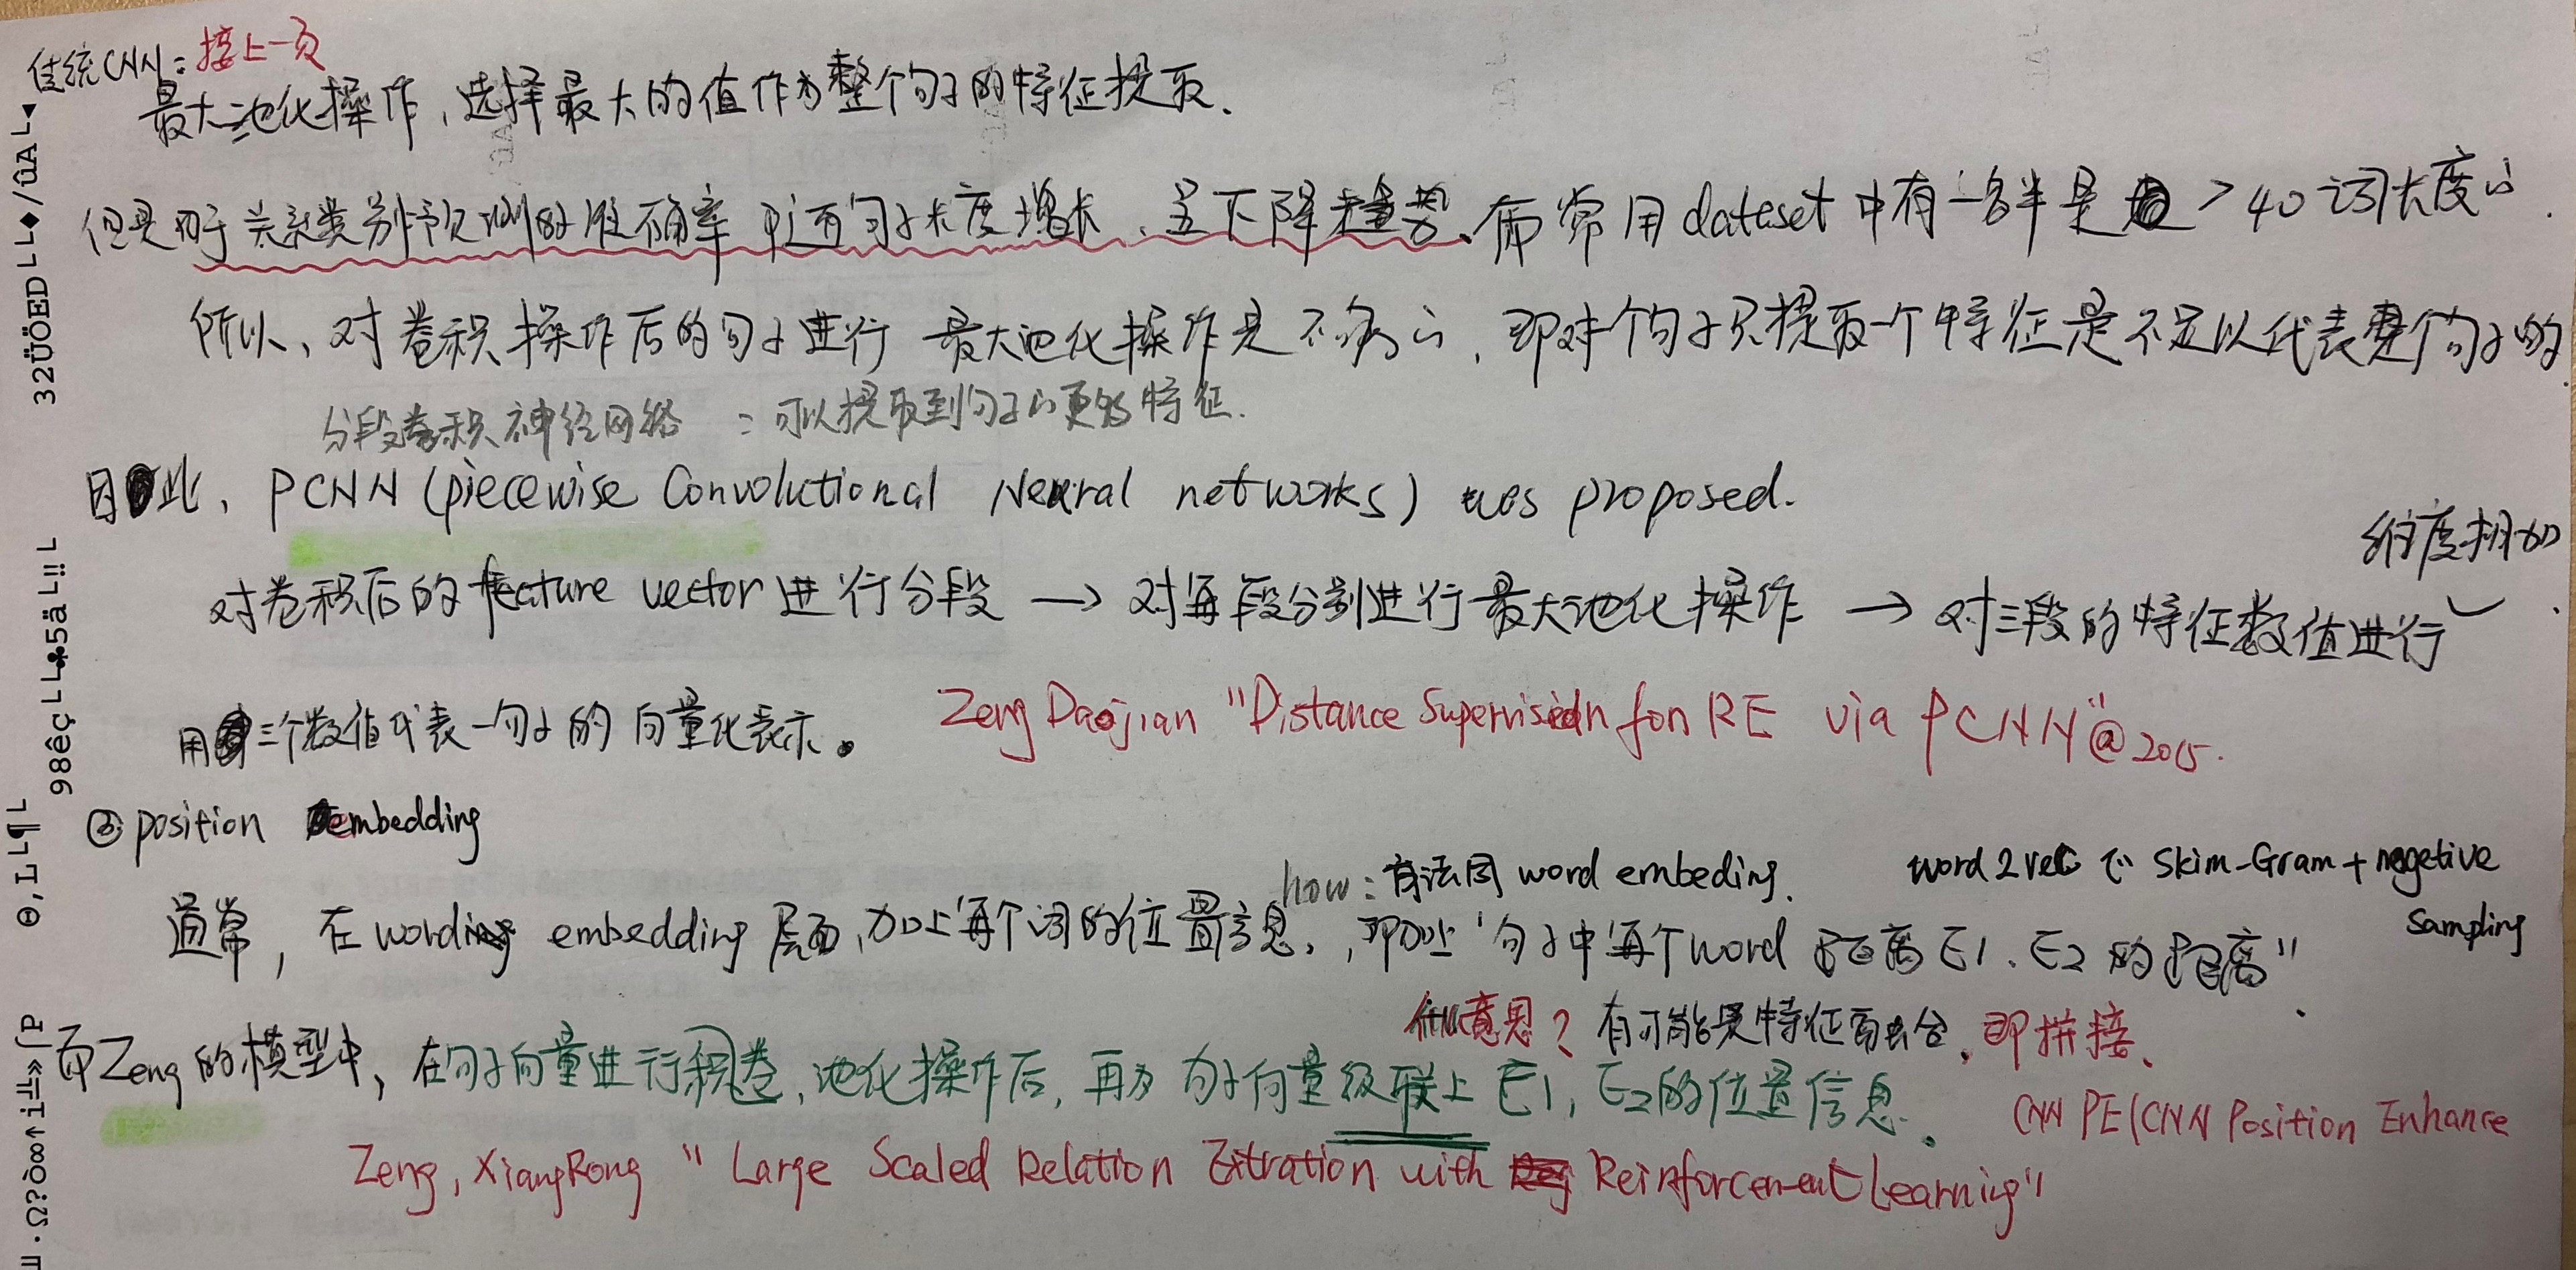 传统CNN：接上一页
最大池化操作，选择最大的值作为整个句子的特征提取.
但是用于关系类别预测的准确率随着句子长度增长，呈下降趋势、而常用dateset中有一多半是 > 40词长度的.
所以、对卷积操作后的句子进行 最大池化操作是不够的，即对个句子只提取一个特征是不足以代表整个句子的.
分段卷积神经网络 ：可以提取到句子的更多特征.
因此，PCNN (piecewise Convolutional Neural networks) was proposed.
维度相加
对卷积后的feature vector进行分段 → 对每段分别进行最大池化操作 → 对三段的特征数值进行
用三个数值代表一句子的向量化表示。 Zeng Daojian "Distance Supervision for RE via PCNN"@2015.
③ position embedding
how：方法同 word embeding. word2vec の Skim-Gram + negetive
sampling
通常，在word embedding 层面，加上每个词的位置信息，即加上"句子中每个word 距离E1、E2的距离".
什么意思？有可能是特征融合，即拼接、
而Zeng的模型中，在句子向量进行积卷，池化操作后，再为句子向量级联上E1，E2的位置信息.
CNN PE(CNN Position Enhance
Zeng, XiangRong "Large Scaled Relation Extration with Reinforcement Learning"
32ÜÖED└└♦/ûA└◄
98êç└└♣5ä└‼└
Θ,I└└¶└